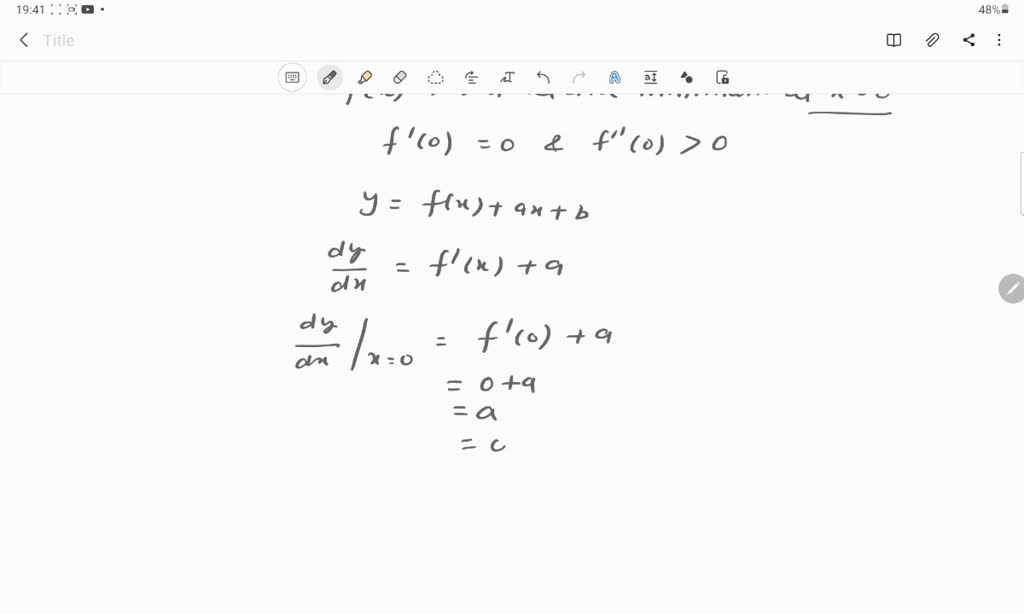 19:41 48%
Title
f'(0) = 0 & f''(0) > 0
y = f(x) + ax + b
dy/dx = f'(x) + a
dy/dx |x=0 = f'(0) + a
= 0 + a
= a
= c